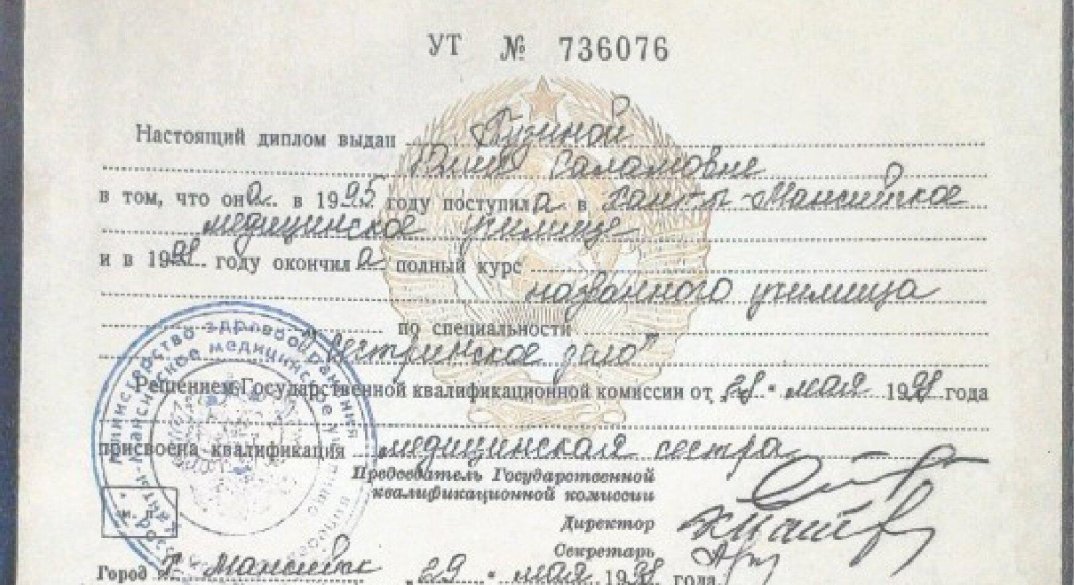 УТ № 736076
Настоящий диплом выдан Пузиной
Юлии Саламовне
в том, что она в 1995 году поступила в Ханты-Мансийское
медицинское училище
и в 1998 году окончила полный курс
названного училища
по специальности
"Сестринское дело"
Решением Государственной квалификационной комиссии от 28 мая 1998 года
присвоена квалификация медицинская сестра
Председатель Государственной
квалификационной комиссии
Директор
Секретарь
Город Х. Мансийск 29 мая 1998 года.
Министерство здравоохранения
Ханты-Мансийское медицинское училище
м. п.